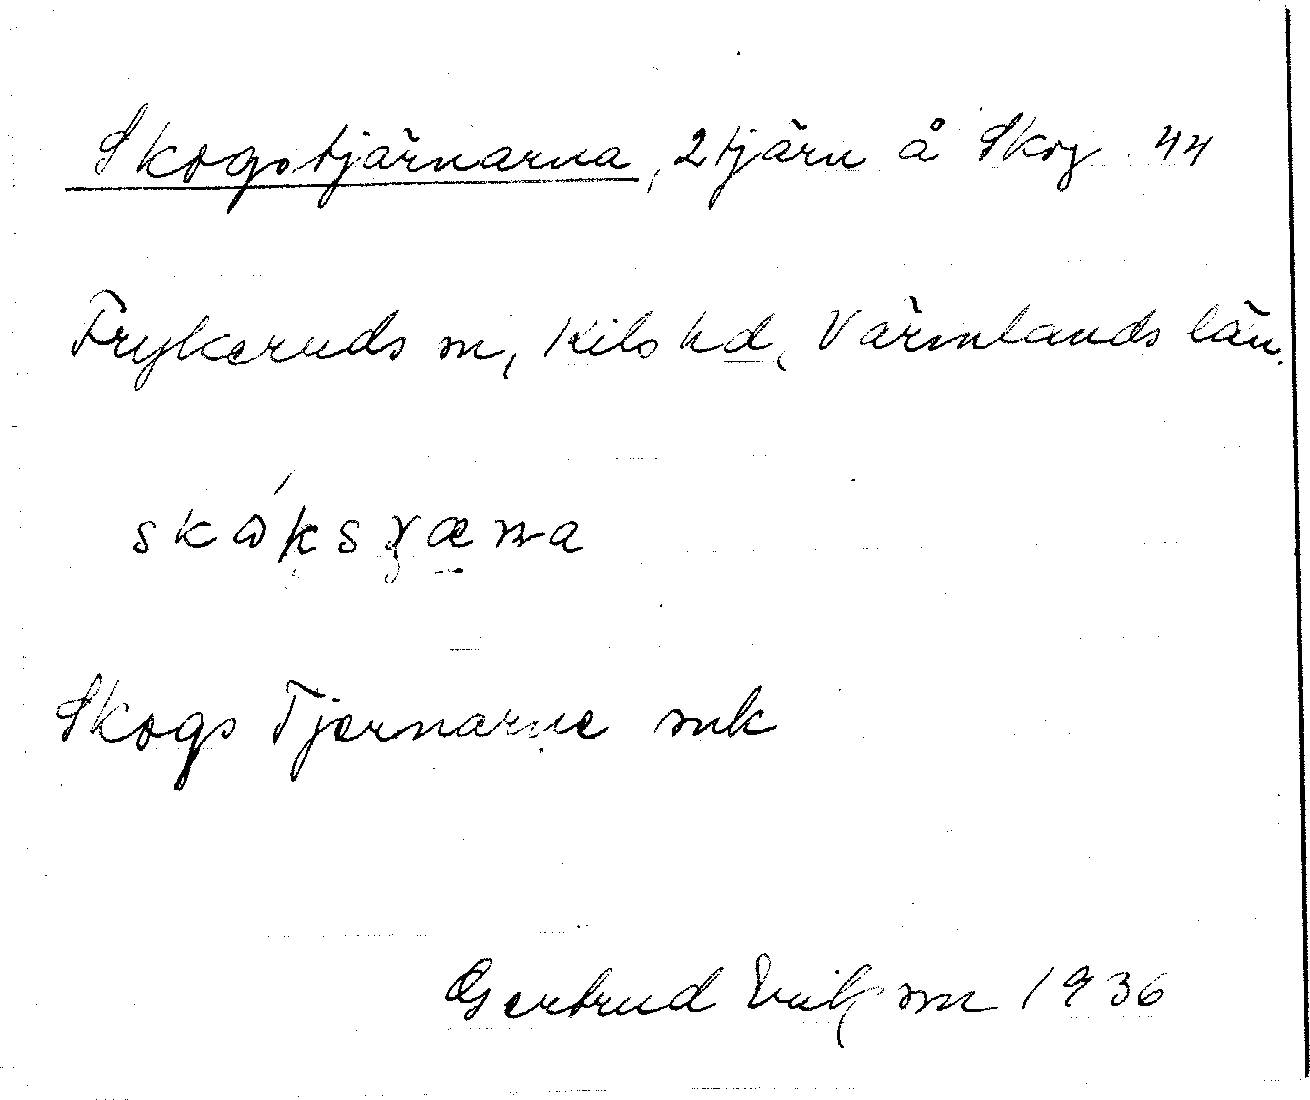 Skogstjärnarna, 2 tjärn å Skog 44
Frykeruds sn, Kils hd, Värmlands län.
Skogs Tjernarne snk
Gertrud Erikson 1936